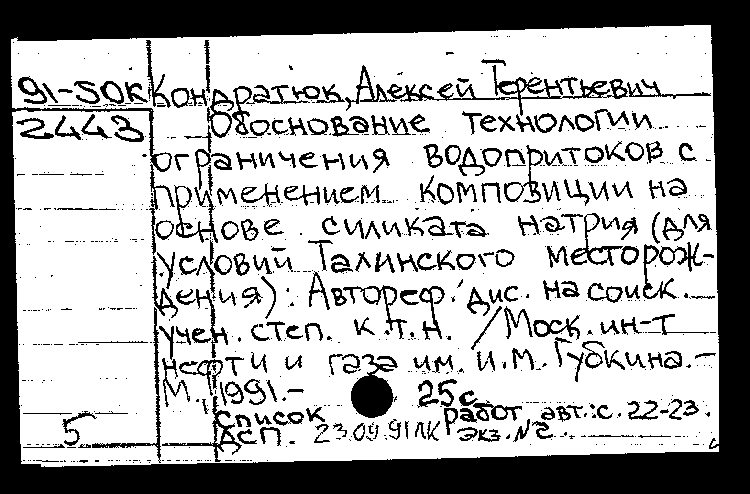 91-50К Кондратюк, Алексей Терентьевич
2443 Обоснование технологии
ограничения водопритоков с
применением композиции на
основе силиката натрия (для
условий Талинского месторож-
дения): Автореф. дис. на соиск.
учен. степ. к.т.н. / Моск. ин-т
нефти и газа им. И.М. Губкина. -
М., 1991. - 25 с.
Список работ авт.: с. 22-23.
5 ДСП. 23.09.91 ЛК Экз. №